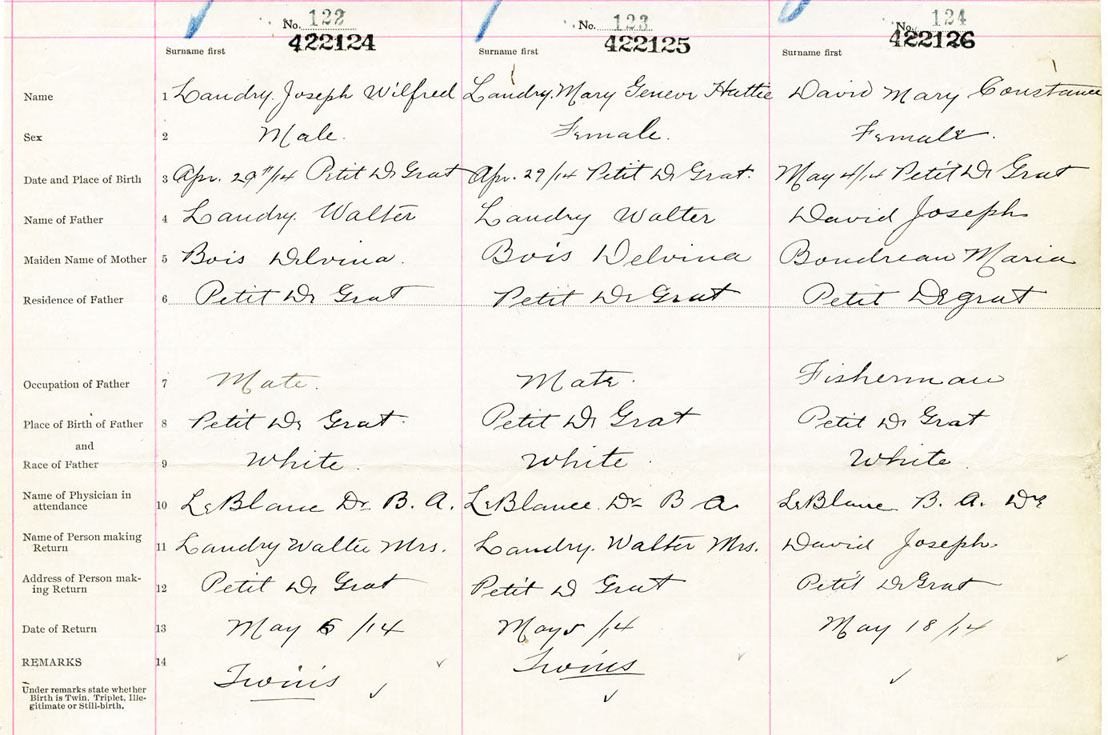 No. 122 No. 123 No. 124
422124 422125 422126
Surname first Surname first Surname first
Name 1 Landry. Joseph Wilfred Landry. Mary Genevr Hattie David Mary Constance
Sex 2 Male. Female. Female.
Date and Place of Birth 3 Apr. 29th/14 Petit De Grat Apr. 29/14 Petit De Grat. May 4/14 Petit De Grat
Name of Father 4 Landry. Walter Landry Walter David Joseph
Maiden Name of Mother 5 Bois Delvina. Bois Delvina Boudreau Maria
Residence of Father 6 Petit De Grat Petit De Grat Petit Degrat
Occupation of Father 7 Mate. Mate. Fisherman
Place of Birth of Father 8 Petit De Grat. Petit De Grat Petit De Grat
and
Race of Father 9 White. White. White.
Name of Physician in
attendance 10 LeBlanc Dr. B. A. LeBlance. Dr B A. LeBlanc B. A. Dr
Name of Person making
Return 11 Landry Walter Mrs. Landry. Walter Mrs. David Joseph.
Address of Person mak-
ing Return 12 Petit De Grat Petit D Grat Petit De Grat
Date of Return 13 May 5 /14 May 5 /14 May 18 /14
REMARKS 14 Twins Twins
Under remarks state whether
Birth is Twin, Triplet, Ille-
gitimate or Still-birth.